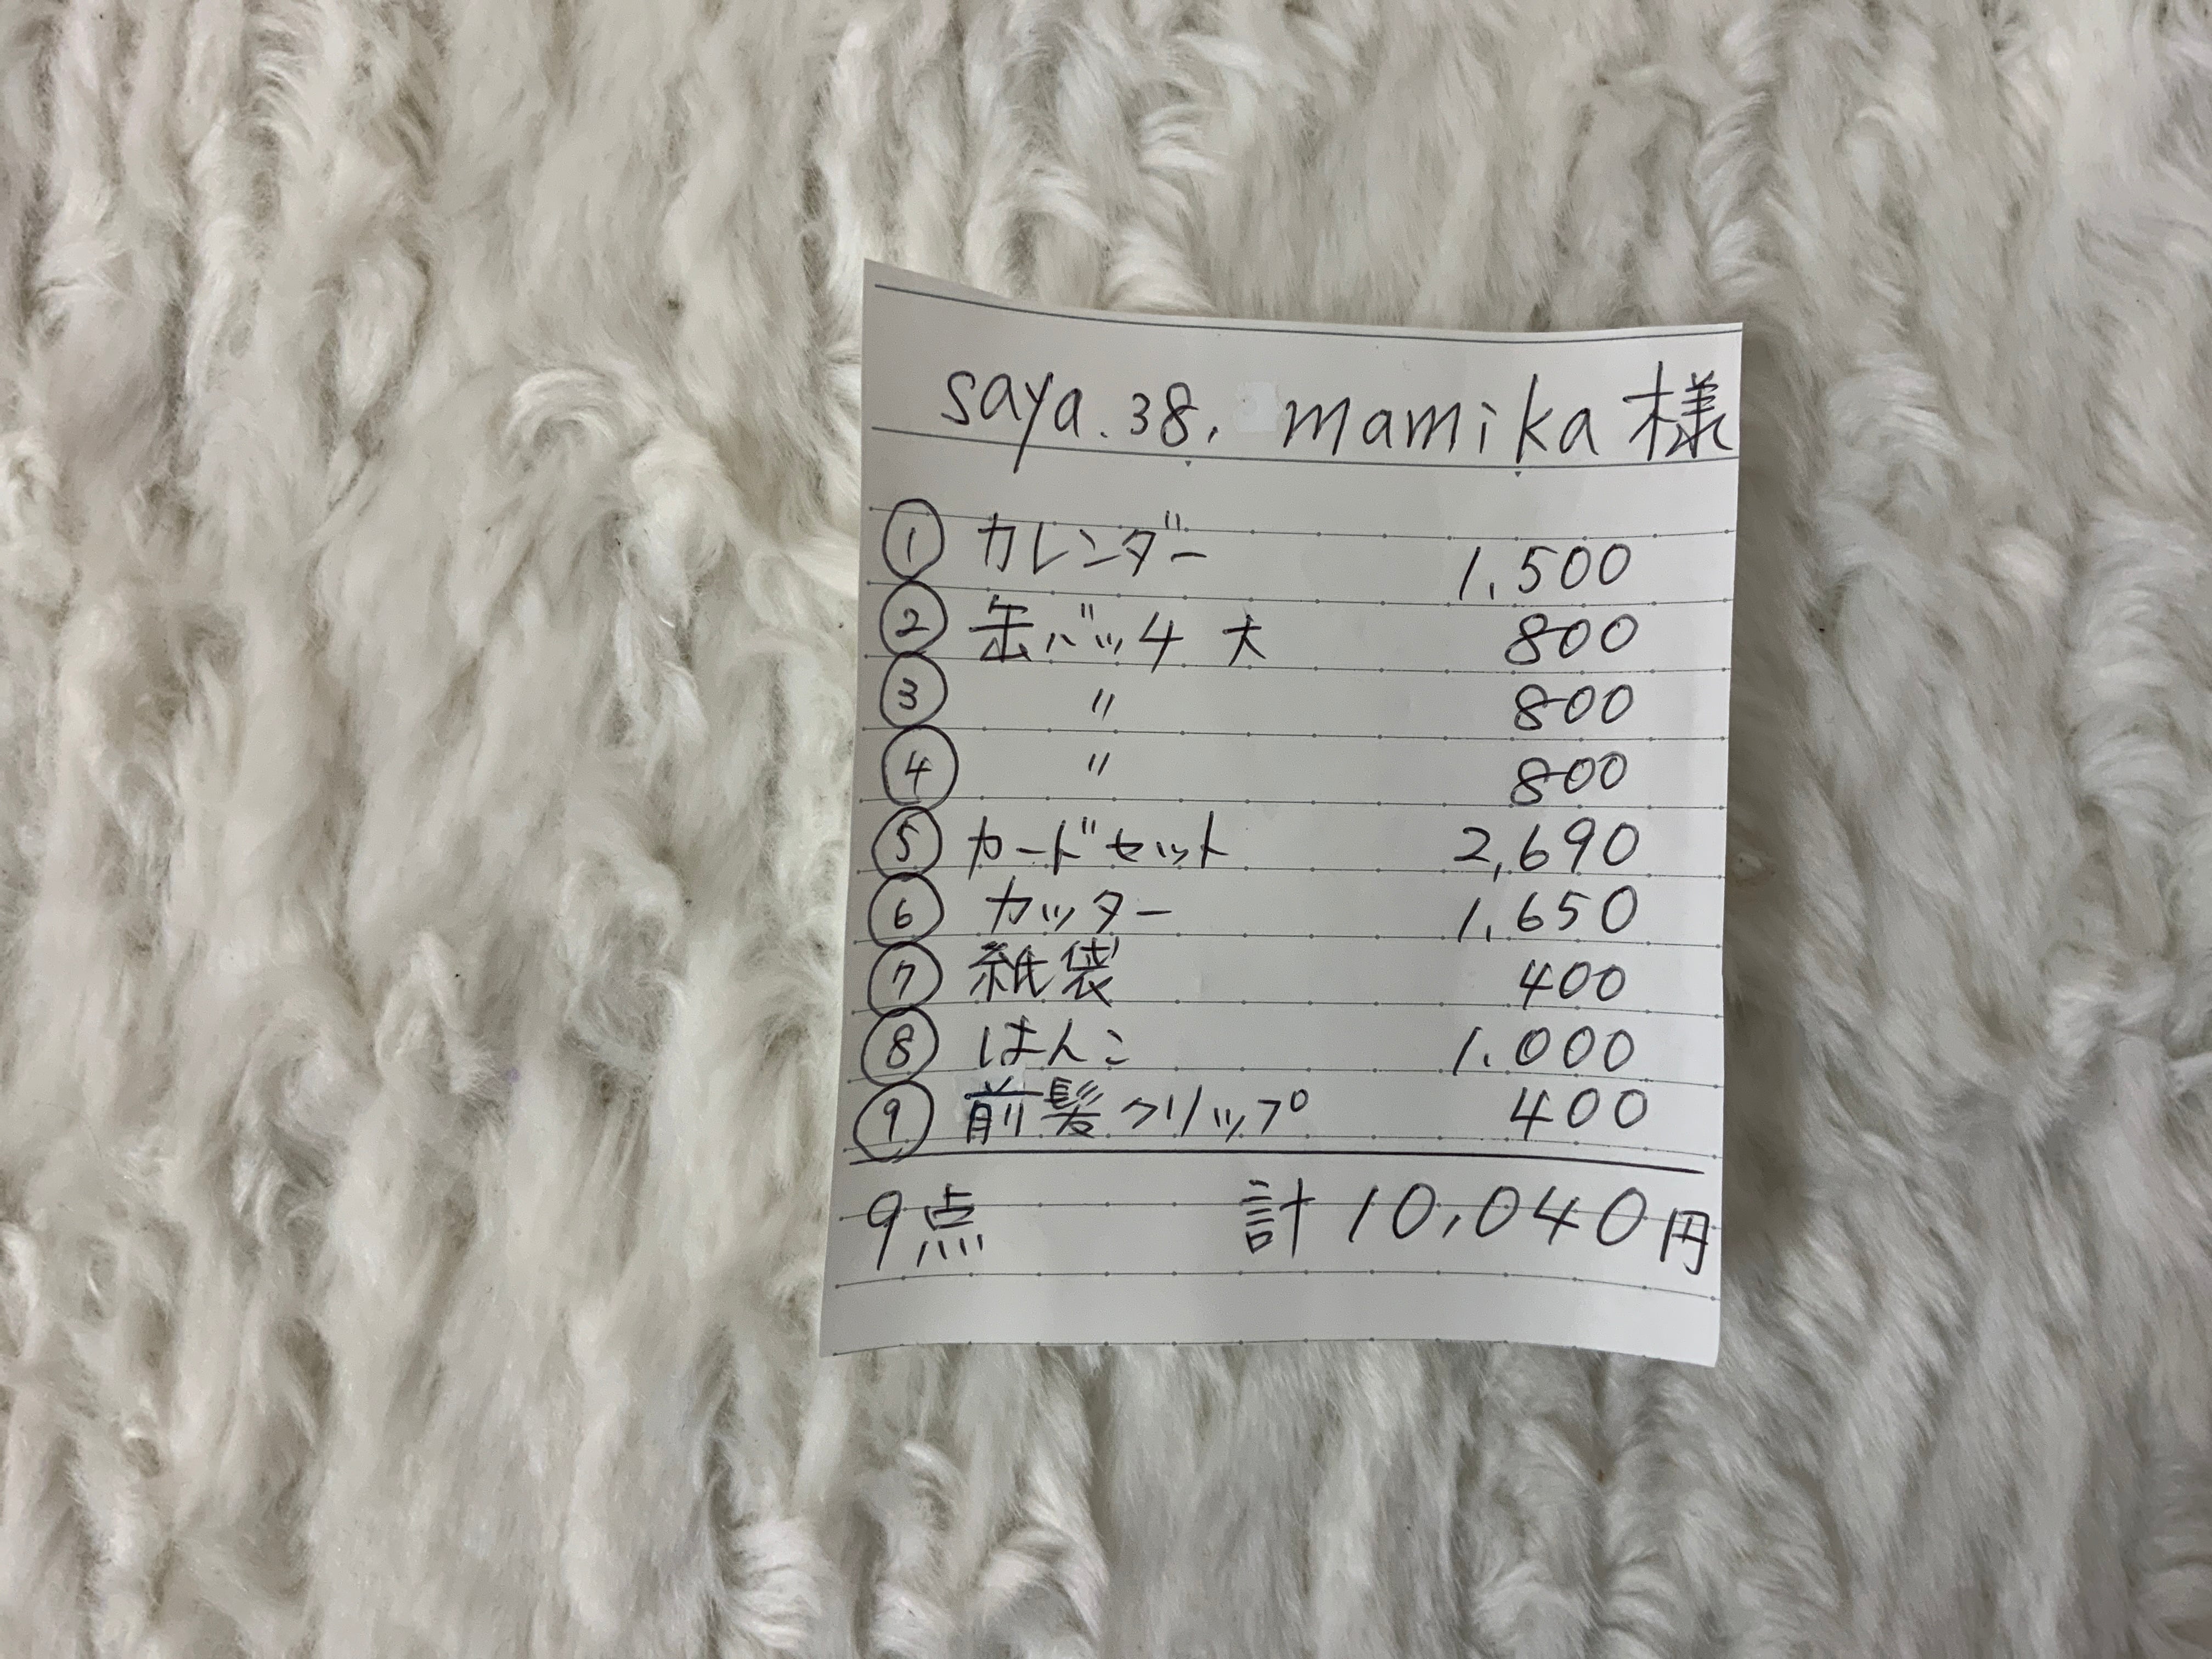 saya.38. mamika 様
① カレンダー 1,500
② 缶バッチ 大 800
③ 〃 800
④ 〃 800
⑤ カードセット 2,690
⑥ カッター 1,650
⑦ 紙袋 400
⑧ はんこ 1.000
⑨ 前髪クリップ 400
9点 計 10,040円